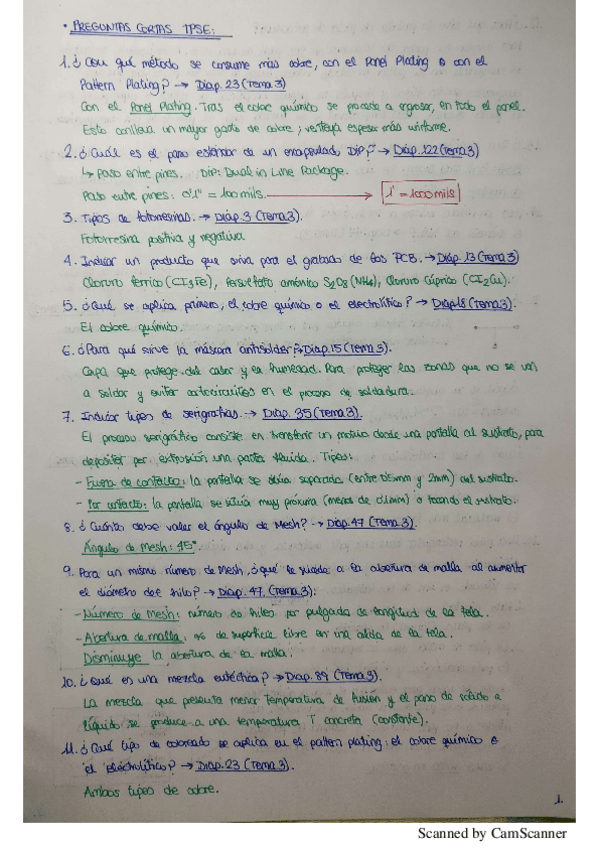 • PREGUNTAS CORTAS TPSE:
1. ¿Con qué método se consume más cobre, con el Panel Plating o con el
Pattern Plating? → Diap. 23 (Tema 3)
Con el Panel Plating. Tras el cobre químico se procede a engrosar, en todo el panel.
Esto conlleva un mayor gasto de cobre; ventaja espesor más uniforme.
2. ¿Cuál es el paso estándar de un encapsulado DIP? → Diap. 122 (Tema 3)
↳ Paso entre pines. DIP: Dual in Line Package.
Paso entre pines: 0'1" = 100 mils. → 1" = 1000 mils
3. Tipos de fotorresinas. → Diap. 3 (Tema 3).
Fotorresina positiva y negativa
4. Indicar un producto que sirva para el grabado de las PCB. → Diap. 13 (Tema 3)
Cloruro férrico (Cl3Fe), persulfato amónico S2O8(NH4), Cloruro Cúprico (Cl2Cu).
5. ¿Qué se aplica primero, el cobre químico o el electrolítico? → Diap. 18 (Tema 3).
El cobre químico.
6. ¿Para qué sirve la máscara antisolder? → Diap. 15 (Tema 3).
Capa que protege del calor y la humedad. Para proteger las zonas que no se van
a soldar y evitar cortocircuitos en el proceso de soldadura.
7. Indicar tipos de serigrafías. → Diap. 35 (Tema 3).
El proceso serigráfico consiste en transferir un motivo desde una pantalla al sustrato, para
depositar por extrusión una pasta fluida. Tipos:
- Fuera de contacto: la pantalla se sitúa separada (entre 0'5mm y 2mm) del sustrato.
- Por contacto: la pantalla se sitúa muy próxima (menos de 0.1mm) o tocando el sustrato.
8. ¿Cuánto debe valer el ángulo de Mesh? → Diap. 47 (Tema 3).
Ángulo de Mesh: 45°
9. Para un mismo número de Mesh, ¿qué le sucede a la abertura de malla al aumentar
el diámetro del hilo? → Diap. 47. (Tema 3):
- Número de Mesh: número de hilos por pulgada de longitud de la tela.
- Abertura de malla: % de superficie libre en una celda de la tela.
Disminuye la abertura de la malla.
10. ¿Qué es una mezcla eutéctica? → Diap. 89 (Tema 3).
La mezcla que presenta menor temperatura de fusión y el paso de sólido a
líquido se produce a una temperatura T concreta (constante).
11. ¿Qué tipo de cobreado se aplica en el pattern plating: el cobre químico o
el electrolítico? → Diap. 23 (Tema 3).
Ambos tipos de cobre.
1.
Scanned by CamScanner